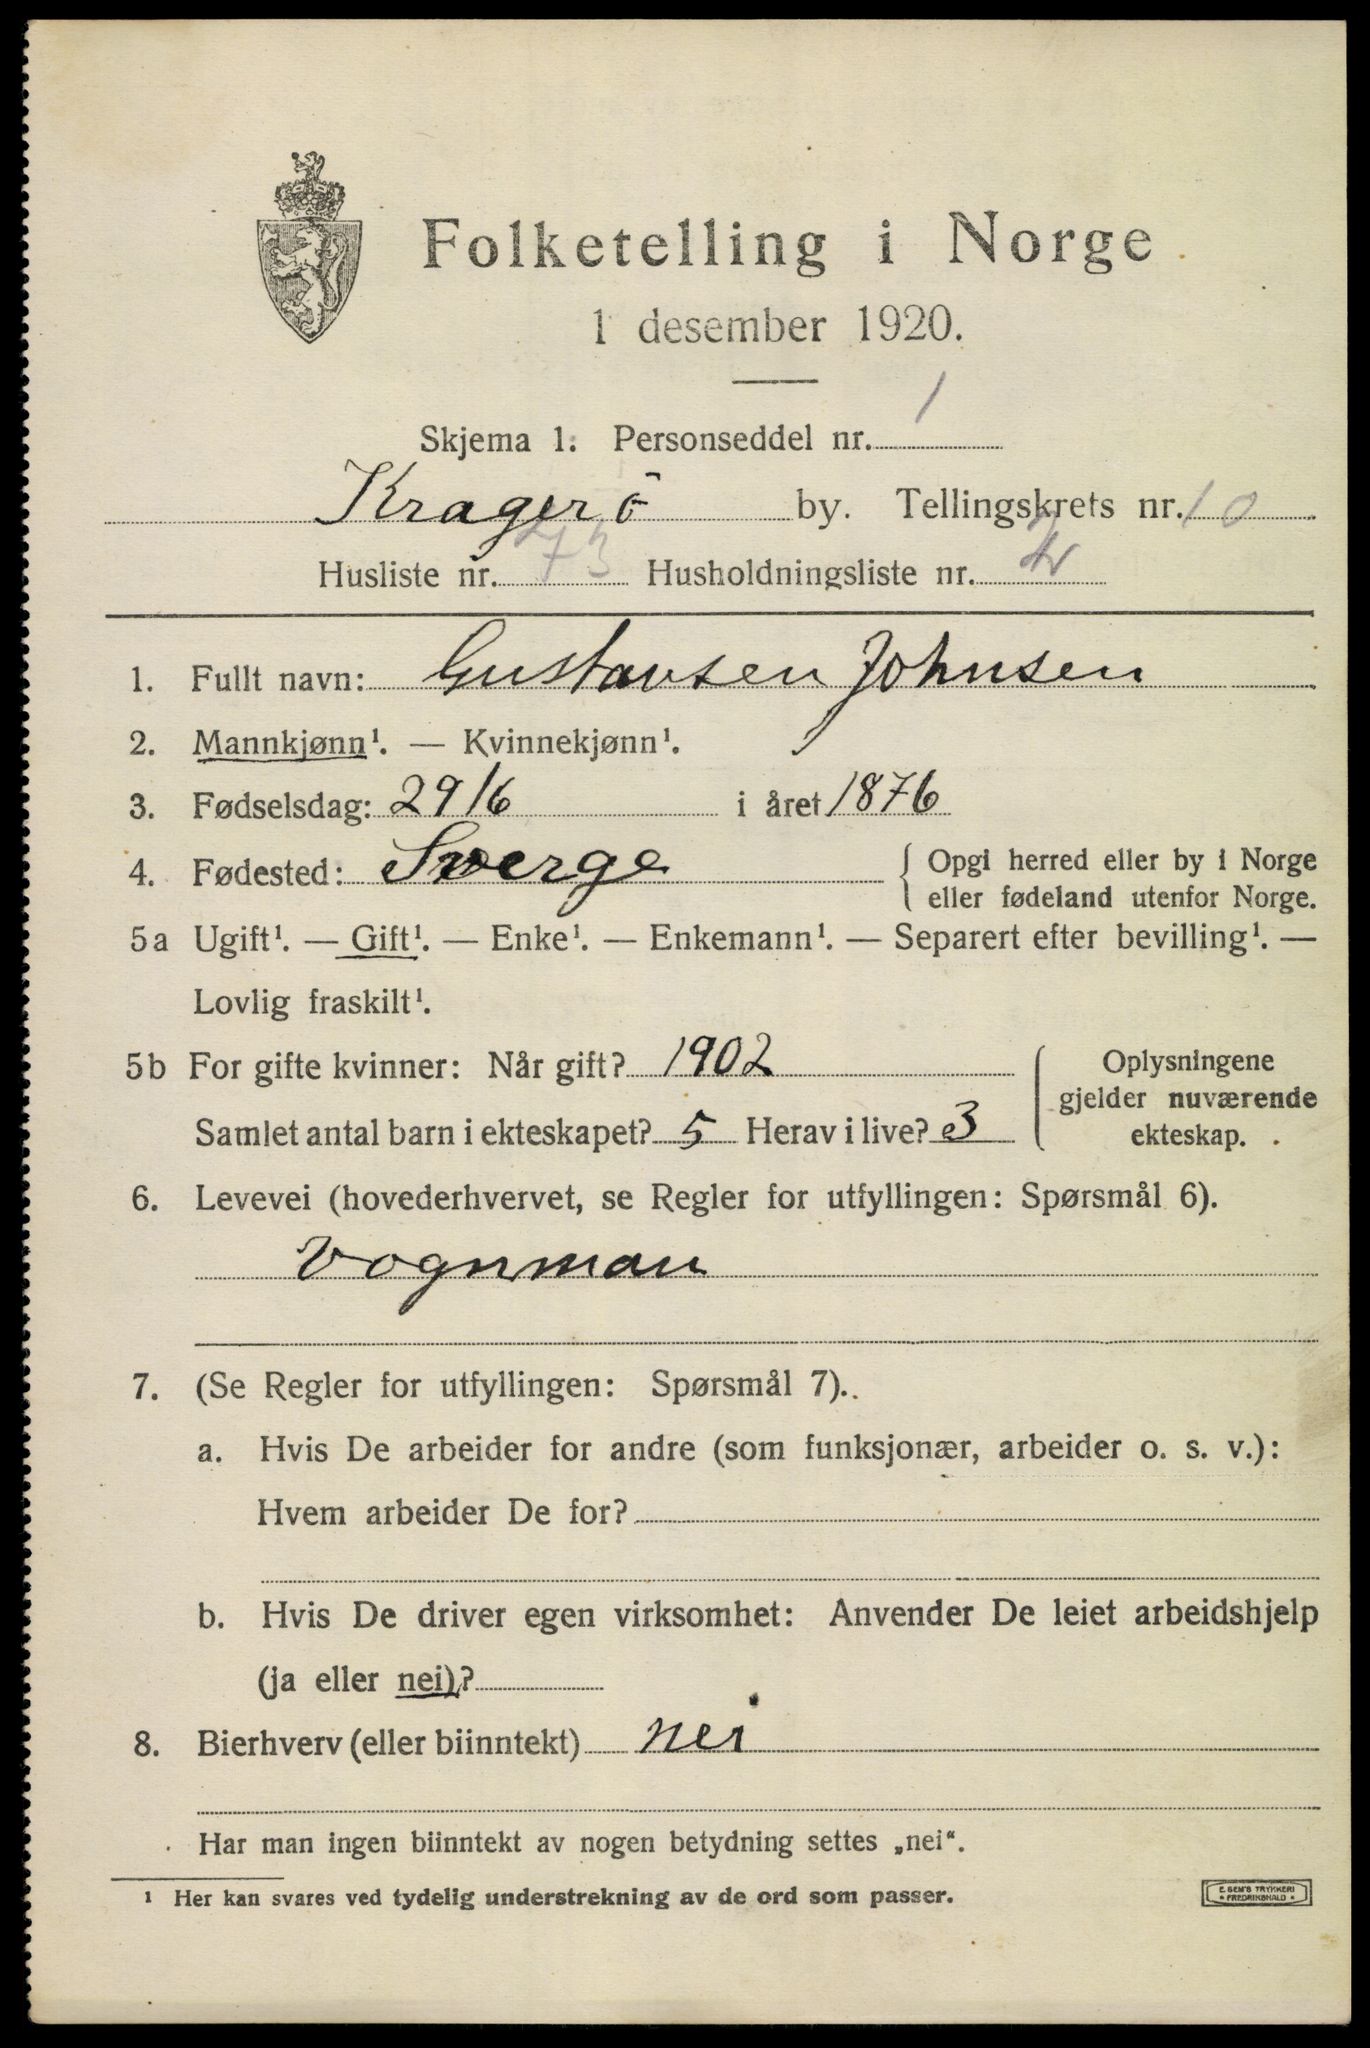 Folketelling i Norge
1 desember 1920.
Skjema 1. Personseddel nr. 1
Kragerö by. Tellingskrets nr. 10
Husliste nr. 73 Husholdningsliste nr. 2
1. Fullt navn: Gustavsen Johnsen
2. Mannkjønn¹. — Kvinnekjønn¹.
3. Fødselsdag: 29/6 i året 1876
4. Fødested: Sverge { Opgi herred eller by i Norge
eller fødeland utenfor Norge.
5a Ugift¹. — Gift¹. — Enke¹. — Enkemann¹. — Separert efter bevilling¹. —
Lovlig fraskilt¹.
5b For gifte kvinner: Når gift? 1902 Oplysningene
gjelder nuværende
Samlet antal barn i ekteskapet? 5 Herav i live? 3 ekteskap.
6. Levevei (hovederhvervet, se Regler for utfyllingen: Spørsmål 6).
Vognman
7. (Se Regler for utfyllingen: Spørsmål 7).
a. Hvis De arbeider for andre (som funksjonær, arbeider o. s. v.):
Hvem arbeider De for?
b. Hvis De driver egen virksomhet: Anvender De leiet arbeidshjelp
(ja eller nei)?
8. Bierhverv (eller biinntekt) nei
Har man ingen biinntekt av nogen betydning settes „nei“.
¹ Her kan svares ved tydelig understrekning av de ord som passer.
E. SEM'S TRYKKERI
• FREDRIKSHALD •